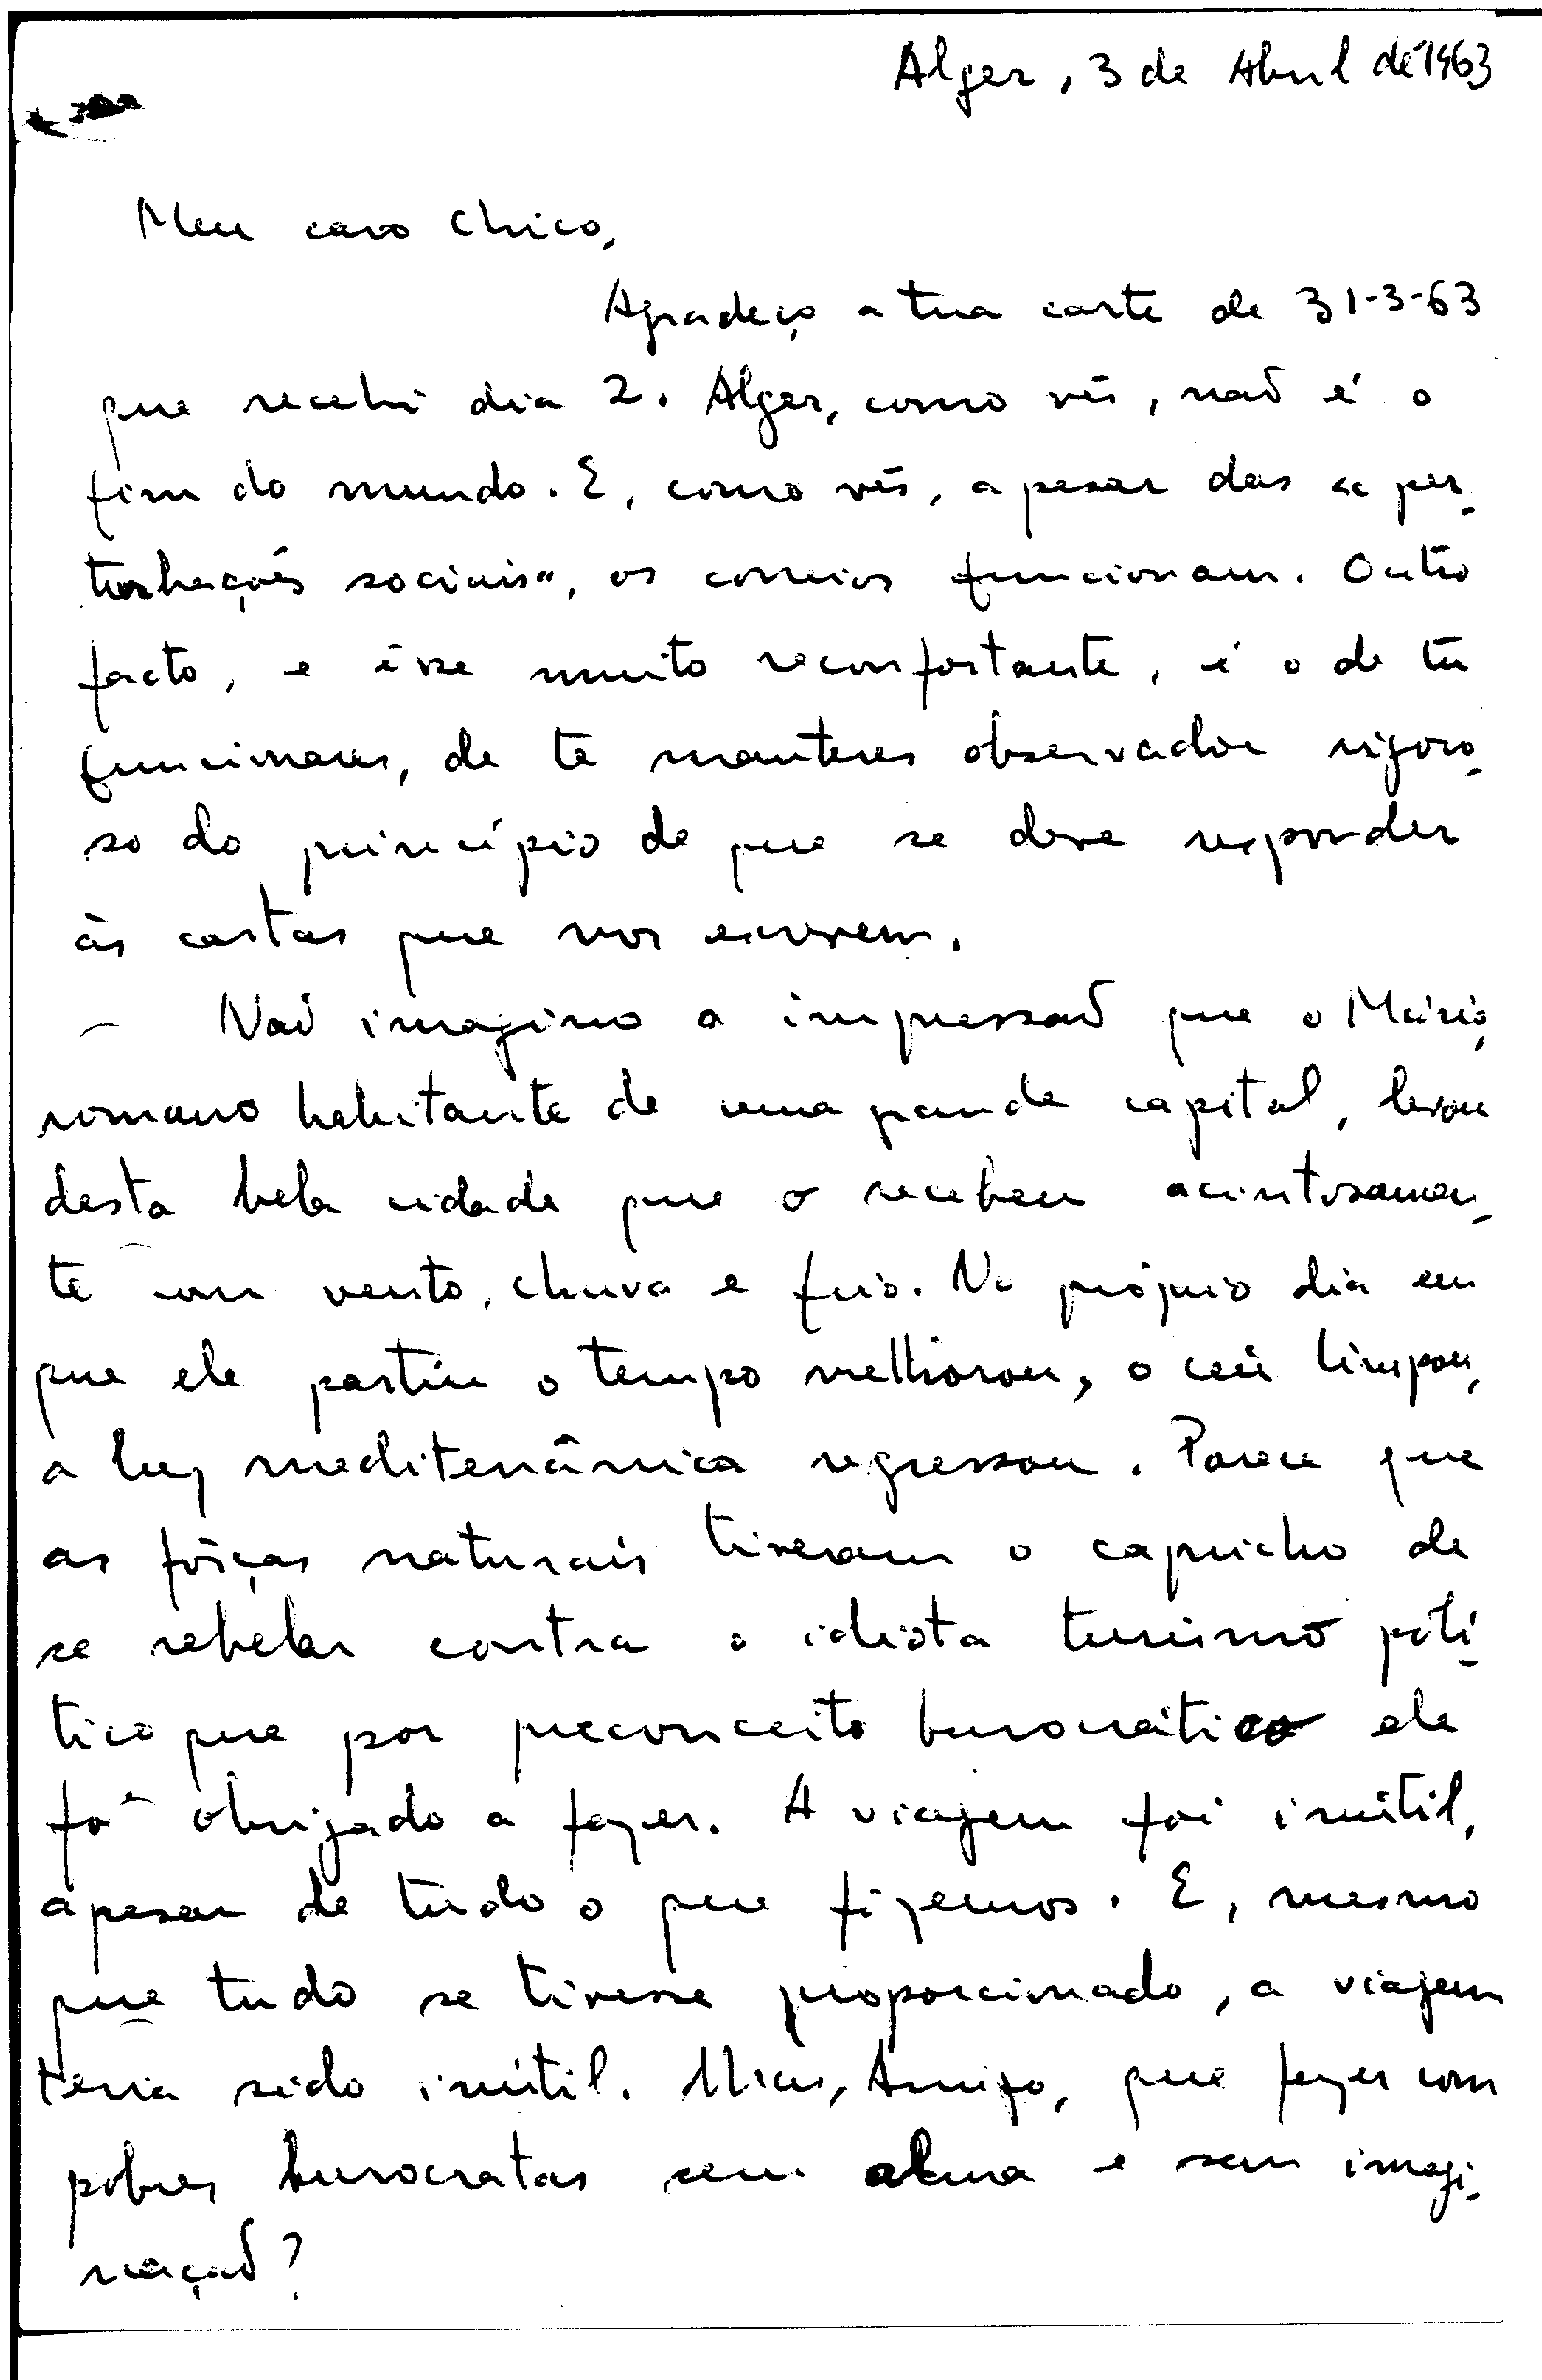 Alger, 3 de Abril de 1963
Meu caro Chico,
Agradeço a tua carta de 31-3-63
que recebi dia 2. Alger, como vês, não é o
fim do mundo. E, como vês, apesar das "per-
turbações sociais", os correios funcionam. Outro
facto, e êsse muito reconfortante, é o de tu
funcionares, de te manteres observador rigoro-
so do princípio de que se deve responder
às cartas que nos escrevem.
Não imagino a impressão que o Mário,
romano habitante de uma grande capital, levou
desta bela cidade que o recebeu acintosamen-
te com vento, chuva e frio. No próprio dia em
que ele partiu o tempo melhorou, o céu limpou,
a luz mediterrânica regressou. Parece que
as fôrças naturais tiveram o capricho de
se rebelar contra o idiota turismo polí-
tico que por preconceito burocrático ele
foi obrigado a fazer. A viagem foi inútil,
apesar de tudo o que fizemos. E, mesmo
que tudo se tivesse proporcionado, a viagem
teria sido inútil. Mas, Amigo, que fazer com
pobres burocratas sem alma e sem imagi-
nação?